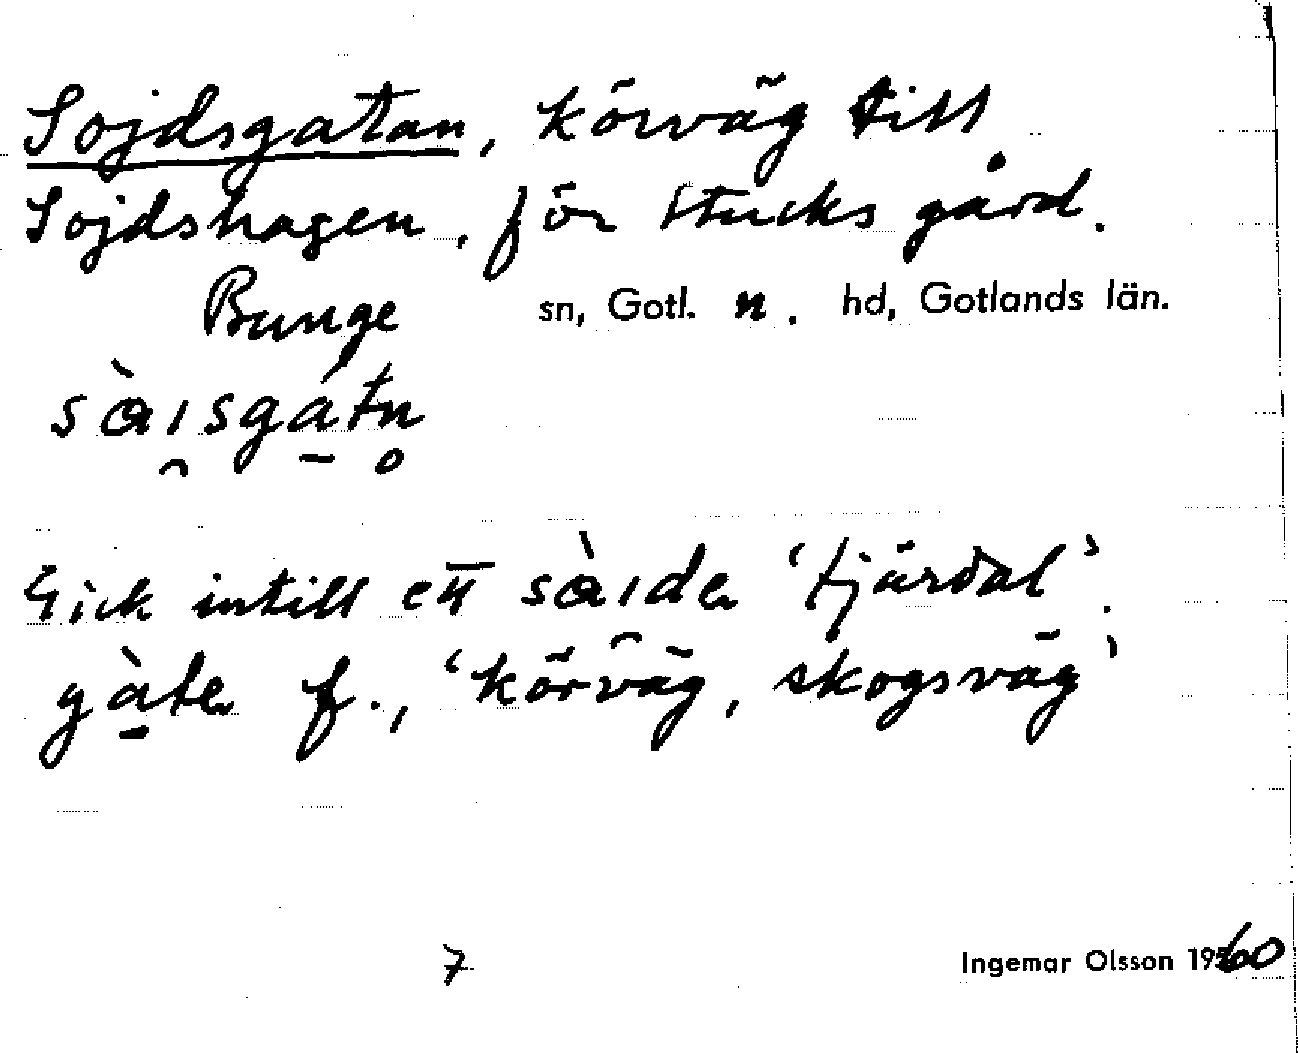 Sojdsgatan, körväg till
Sojdshagen, för Stucks gård.
Bunge sn, Gotl. n. hd, Gotlands län.
sàı̯sgá̱tn̥
Gick intill ett sàıda 'tjärdal'.
gà̱ta f., 'körväg, skogsväg'
7 Ingemar Olsson 1960